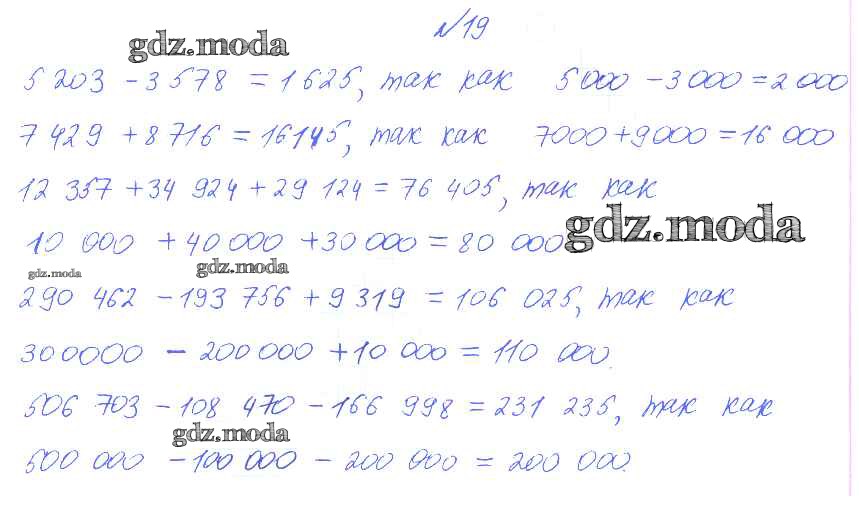 №19
gdz.moda
5 203 - 3 578 = 1 625, так как 5 000 - 3 000 = 2 000
7 429 + 8 716 = 16145, так как 7000 + 9 000 = 16 000
12 357 + 34 924 + 29 124 = 76 405, так как
gdz.moda
10 000 + 40 000 + 30 000 = 80 000
gdz.moda
gdz.moda
290 462 - 193 756 + 9 319 = 106 025, так как
300000 - 200 000 + 10 000 = 110 000.
506 703 - 108 470 - 166 998 = 231 235, так как
gdz.moda
500 000 - 100 000 - 200 000 = 200 000.